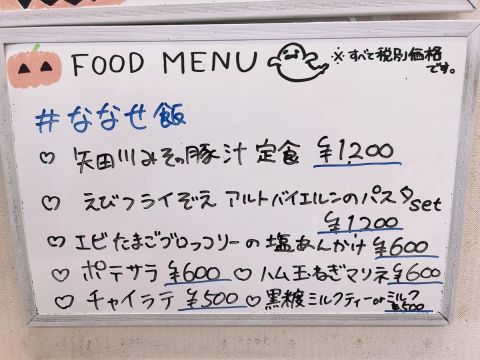 FOOD MENU ※すべて税別価格
です。
#ななせ飯
♡ 矢田川みその豚汁 定食 ¥1200
♡ えびフライぞえ アルトバイエルンのパスタset
¥1200
♡ エビたまごブロッコリーの塩あんかけ ¥600
♡ ポテサラ ¥600 ♡ ハム玉ねぎマリネ ¥600
♡ チャイラテ ¥500 ♡ 黒糖ミルクティーorミルク
¥500